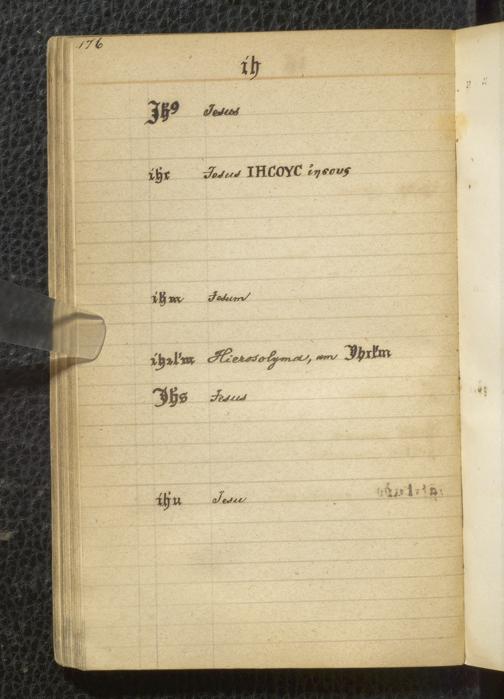 176
ih
Jhꝯ Jesus
ihc Jesus IHCOYC ἰησους
ihm Jesum
Hierosolyma, am
Jhs Jesus
ihu Jesu